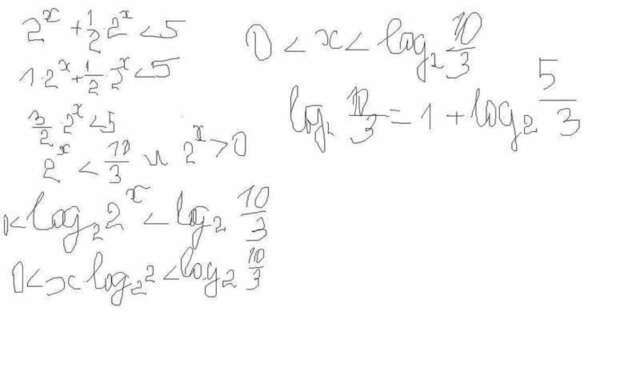 2^x + 1/2 · 2^x < 5
1·2^x + 1/2 · 2^x < 5
3/2 · 2^x < 5
2^x < 10/3 и 2^x > 0
< log₂ 2^x < log₂ 10/3
0 < x log₂ 2 < log₂ 10/3
0 < x < log₂ 10/3
log₂ 10/3 = 1 + log₂ 5/3